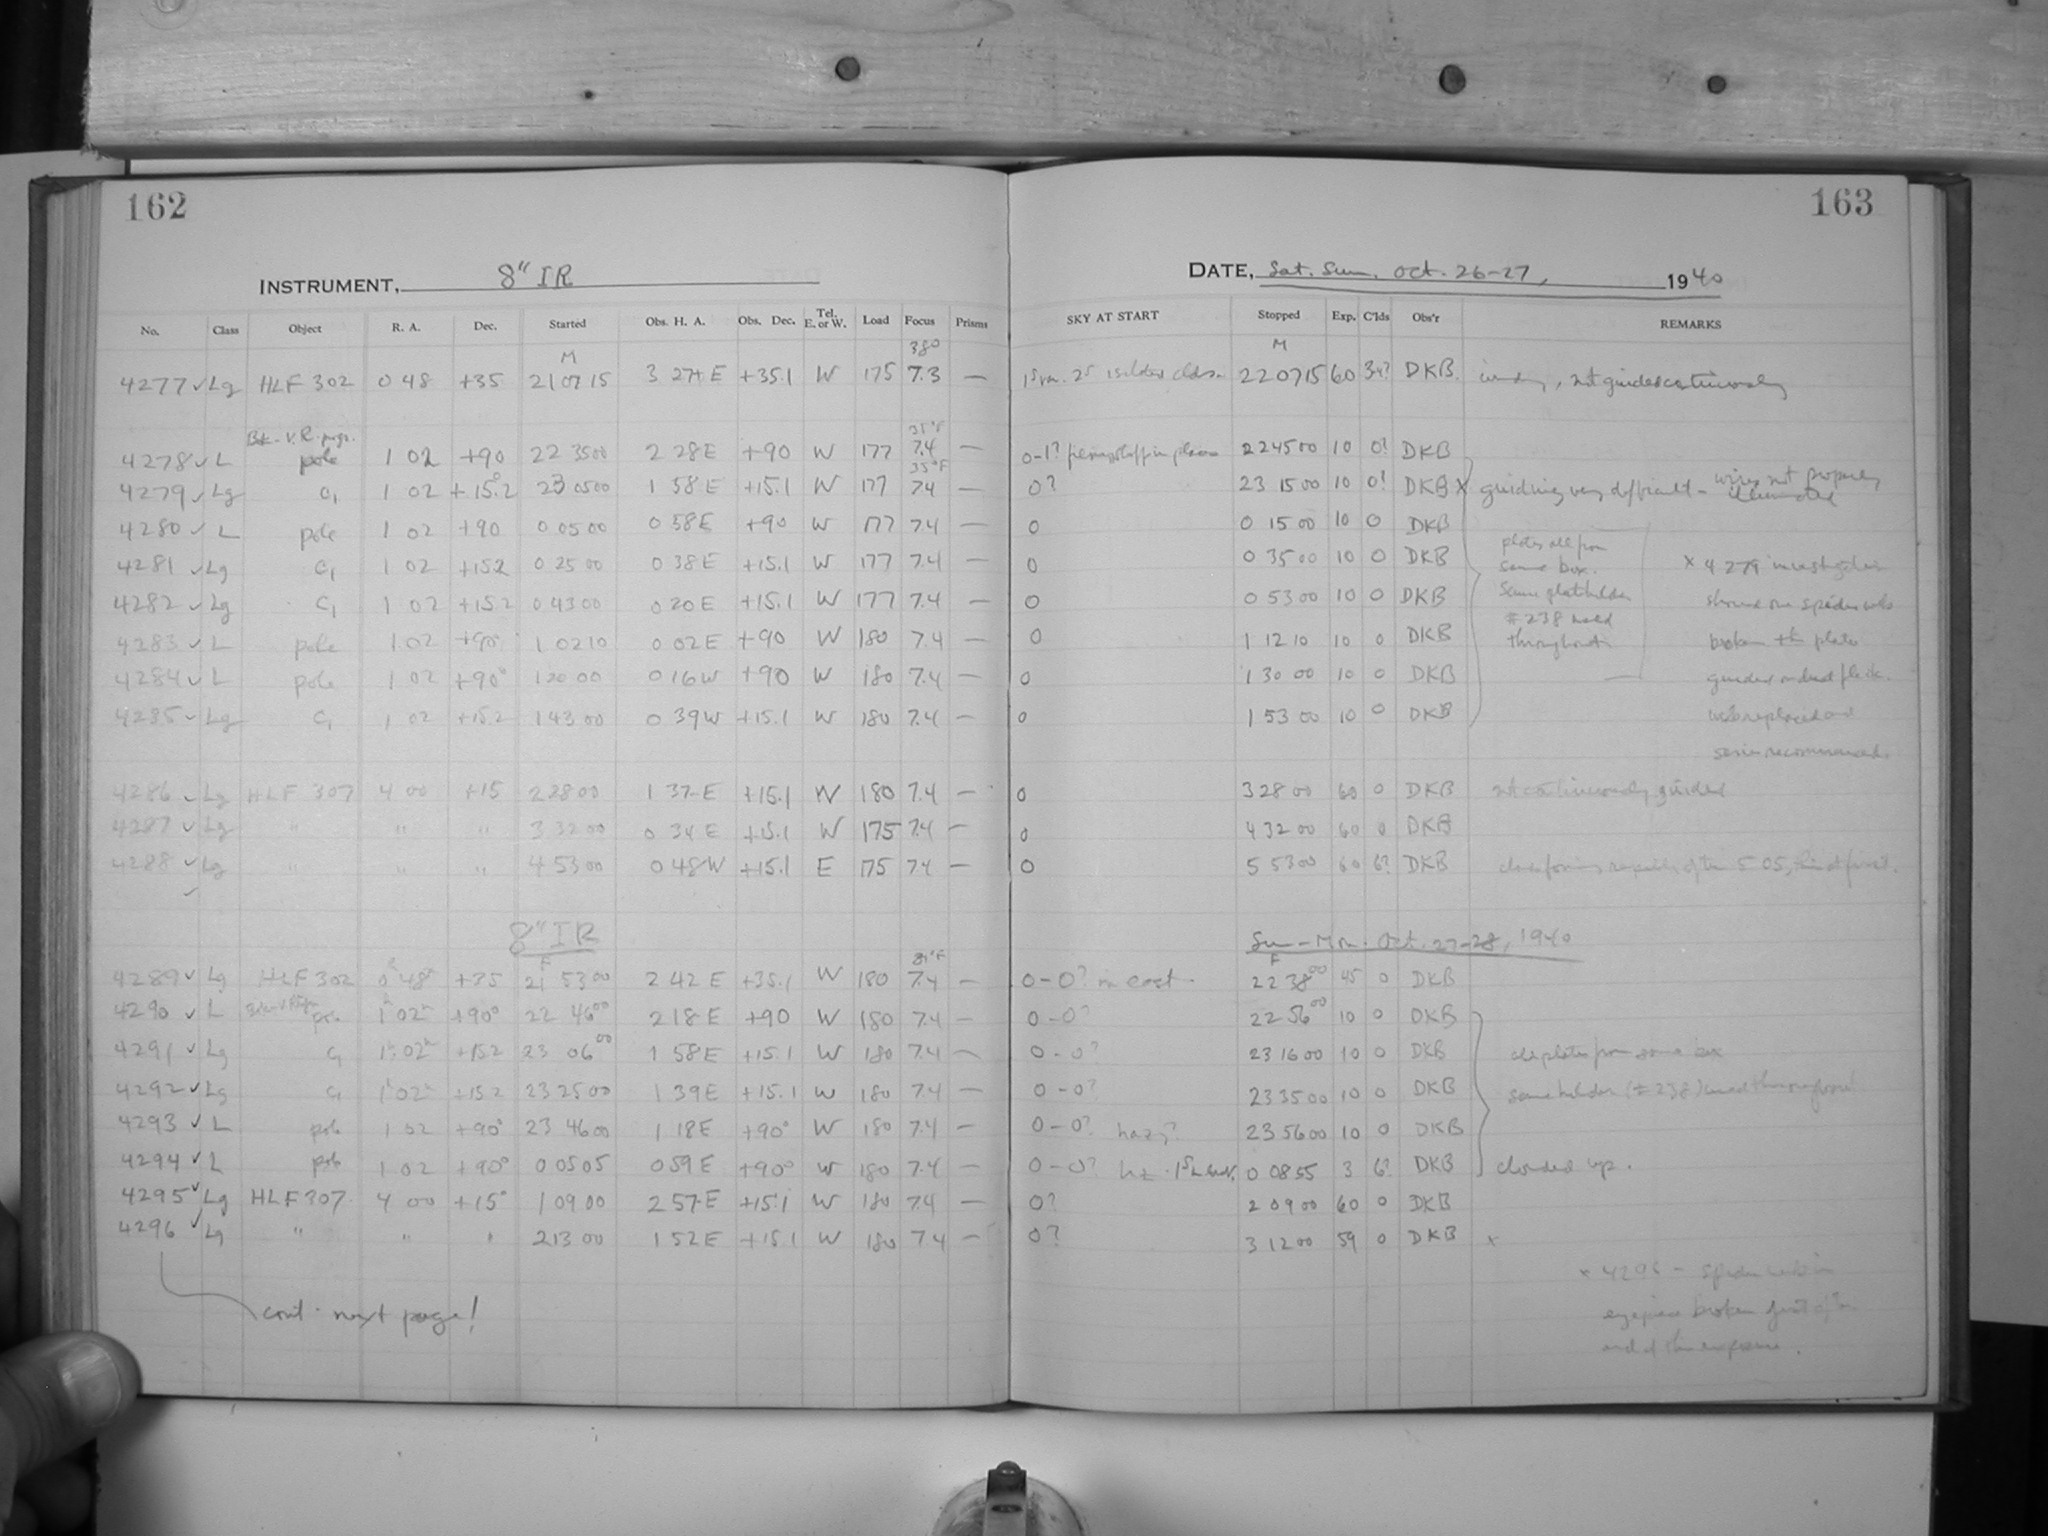 162
163
INSTRUMENT, 8" IR
DATE, Sat. Sun. Oct. 26-27, 1940
No. Class Object R. A. Dec. Started Obs. H. A. Obs. Dec. Tel. E. or W. Load Focus Prisms SKY AT START Stopped Exp. C'lds Obs'r REMARKS
M 380 M
4277 ✓ Lg HLF 302 0 48 +35 21 07 15 3 27 E +35.1 W 175 7.3 — 22 07 15 60 DKB. windy, not guided continuously
35°F
4278 ✓ L pole 1 02 +90 22 35 00 2 28 E +90 W 177 7.4 — 0-1? 22 45 00 10 0? DKB
35°F
4279 ✓ Lg C1 1 02 +15.2 23 05 00 1 58 E +15.1 W 177 7.4 — 0? 23 15 00 10 0! DKB x guiding very difficult - wires not properly illuminated
4280 ✓ L pole 1 02 +90 0 05 00 0 58 E +90 W 177 7.4 — 0 0 15 00 10 0 DKB
4281 ✓ Lg C1 1 02 +15.2 0 25 00 0 38 E +15.1 W 177 7.4 — 0 0 35 00 10 0 DKB
4282 ✓ Lg C1 1 02 +15.2 0 43 00 0 20 E +15.1 W 177 7.4 — 0 0 53 00 10 0 DKB
4283 ✓ L pole 1 02 +90° 1 02 10 0 02 E +90 W 180 7.4 — 0 1 12 10 10 0 DKB
4284 ✓ L pole 1 02 +90° 1 20 00 0 16 W +90 W 180 7.4 — 0 1 30 00 10 0 DKB
4285 ✓ Lg C1 1 02 +15.2 1 43 00 0 39 W +15.1 W 180 7.4 — 0 1 53 00 10 0 DKB
plates all from
same box.
same plateholder
#238 used
throughout
x 4279 investigation
showed one spider web
broken + the plate
guided on
web replaced and
series recommenced.
4286 ✓ Lg HLF 307 4 00 +15 2 28 00 1 37 E +15.1 W 180 7.4 — 0 3 28 00 60 0 DKB not continuously guided
4287 ✓ Lg " " " 3 32 00 0 34 E +15.1 W 175 7.4 — 0 4 32 00 60 0 DKB
4288 ✓ Lg " " " 4 53 00 0 48 W +15.1 E 175 7.4 — 0 5 53 00 60 6? DKB clouds forming rapidly after 5 05, thin at first.
✓
8" IR Sun - Mon. Oct. 27-28, 1940
4289 ✓ Lg HLF 302 0 48 +35 21 53 00 2 42 E +35.1 W 180 7.4 — 0-0? in east. 22 38 00 45 0 DKB
4290 ✓ L pole 1 02 +90° 22 46 00 2 18 E +90 W 180 7.4 — 0-0? 22 56 00 10 0 DKB
4291 ✓ Lg C1 1 02 +15.2 23 06 00 1 58 E +15.1 W 180 7.4 — 0-0? 23 16 00 10 0 DKB all plates from same box
4292 ✓ Lg C1 1 02 +15.2 23 25 00 1 39 E +15.1 W 180 7.4 — 0-0? 23 35 00 10 0 DKB same holder (#238) used throughout
4293 ✓ L pole 1 02 +90° 23 46 00 1 18 E +90° W 180 7.4 — 0-0? hazy? 23 56 00 10 0 DKB
4294 ✓ L pole 1 02 +90° 0 05 05 0 59 E +90° W 180 7.4 — 0-0? 0 08 55 3 6? DKB clouded up.
4295 ✓ Lg HLF 307. 4 00 +15° 1 09 00 2 57 E +15.1 W 180 7.4 — 0? 2 09 00 60 0 DKB
4296 ✓ Lg " " " 2 13 00 1 52 E +15.1 W 180 7.4 — 0? 3 12 00 59 0 DKB x
cont. next page!
x 4296 - spider web in
eyepiece broken
end of the exposure.